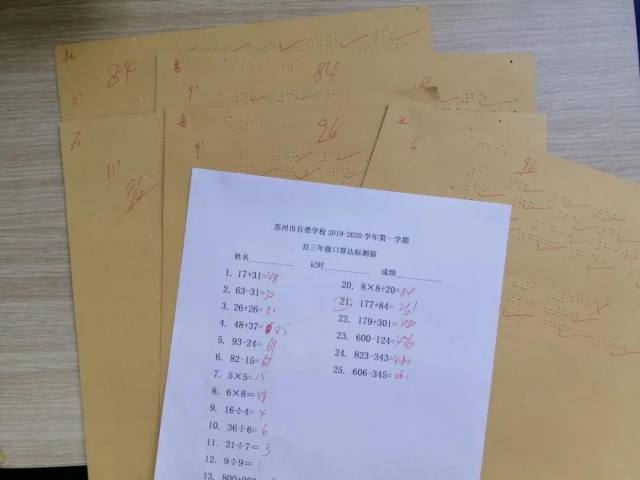 84
11'
84
9'
96
9'
96
11'
96
6
苏州市盲聋学校 2019-2020 学年第一学期
盲三年级口算达标测验
姓名 记时 成绩
1. 17+31=48
2. 63-31=32
3. 26+26=52
4. 48+37=85
5. 93-24=69
6. 82-15=67
7. 5×5=25
8. 6×8=48
9. 16÷4=4
10. 36÷6=6
11. 21÷7=3
12. 9÷9=1
20. 8×8+20=84
21. 177+84=261
22. 179+301=
23. 600-124=476
24. 823-343=480
25. 606-345=261